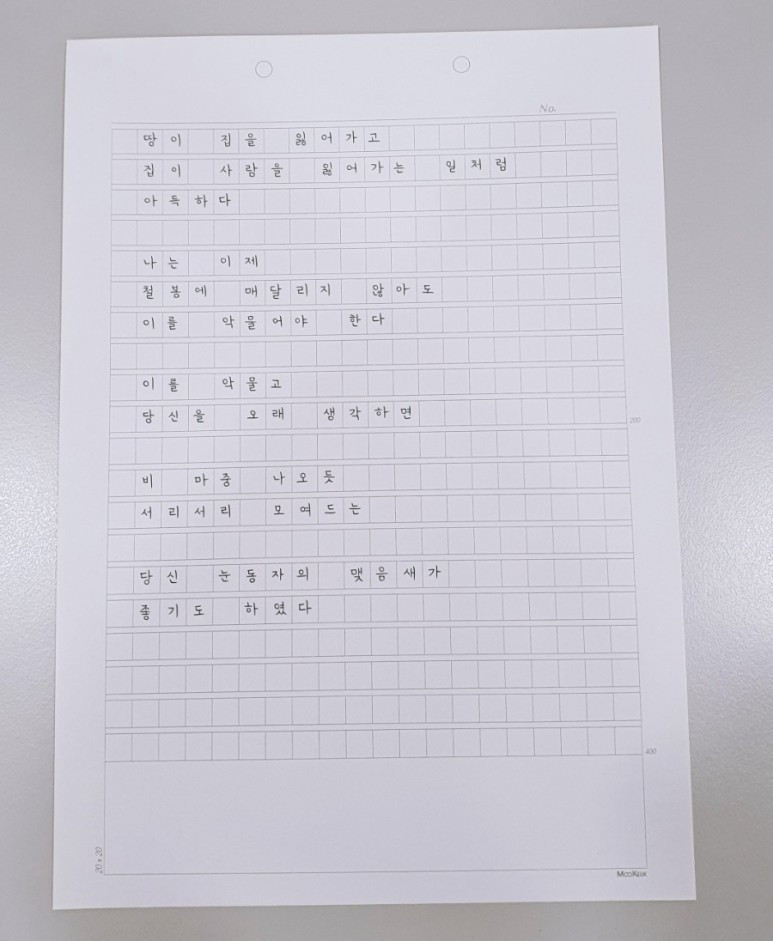 No.
땅이 집을 잃어가고
집이 사람을 잃어가는 일처럼
아득하다
나는 이제
철봉에 매달리지 않아도
이를 악물어야 한다
이를 악물고
당신을 오래 생각하면
200
비 마중 나오듯
서리서리 모여드는
당신 눈동자의 맺음새가
좋기도 하였다
400
20 x 20
MOOKEUK